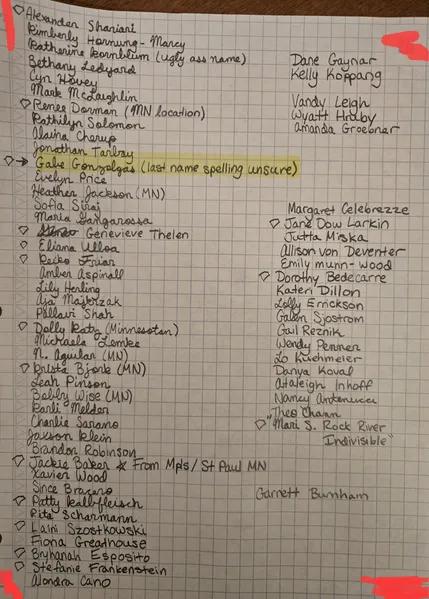 Alexander Shariari
Kimberly Hornung-Marcy
Katherine Kornblum (ugly ass name)
Bethany Ledyard
Cyn Hovey
Mark McLaughlin
Renee Dorman (MN location)
Kathilyn Solomon
Alaina Cherup
Jonathan Tarbay
→ Gabe Gonzolgas (last name spelling unsure)
Evelyn Price
Heather Jackson (MN)
Sofia Siraj
Maria Gangarossa
Genevieve Thelen
Eliana Ulloa
Recko Friar
Amber Aspinall
Lily Herling
Aja Majkrzak
Pallavi Shah
Dolly Katz (Minnesotan)
Mickaela Lemke
N. Aguilar (MN)
Krista Bjork (MN)
Leah Pinson
Bobby Wise (MN)
Karli Meldon
Charlie Sarano
Jaxson Klein
Brandon Robinson
Jackie Baker From Mpls/St Paul MN
Xavier Wood
Since Brazero
Patty Kalbfleisch
Rita Scharmann
Laini Szostkowski
Fiona Greathouse
Bryhanah Esposito
Stefanie Frankenstein
Alondra Cano
Dane Gaynar
Kelly Koppang
Vandy Leigh
Wyatt Hruby
Amanda Groebnar
Margaret Celebrezze
Jane Dow Larkin
Jutta Miska
Allison von Deventer
Emily Munn-Wood
Dorothy Bedecarre
Kateri Dillon
Lolly Errickson
Galen Sjostrom
Gail Reznik
Wendy Penner
Lo Kuehmeier
Danya Koval
Ataleigh Inhoff
Nancy Antonucci
"Theo Chann"
"Mari S. Rock River
Indivisible"
Garrett Burnham